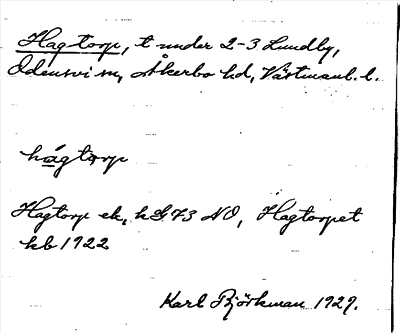 Hagtorp, t under 2-3 Lundby,
Odensvi sn, Åkerbo hd, Västmanl. l.
hágtorp
Hagtorp ek, hS 73 NO, Hagtorpet
kb 1922
Karl Björkman 1929.